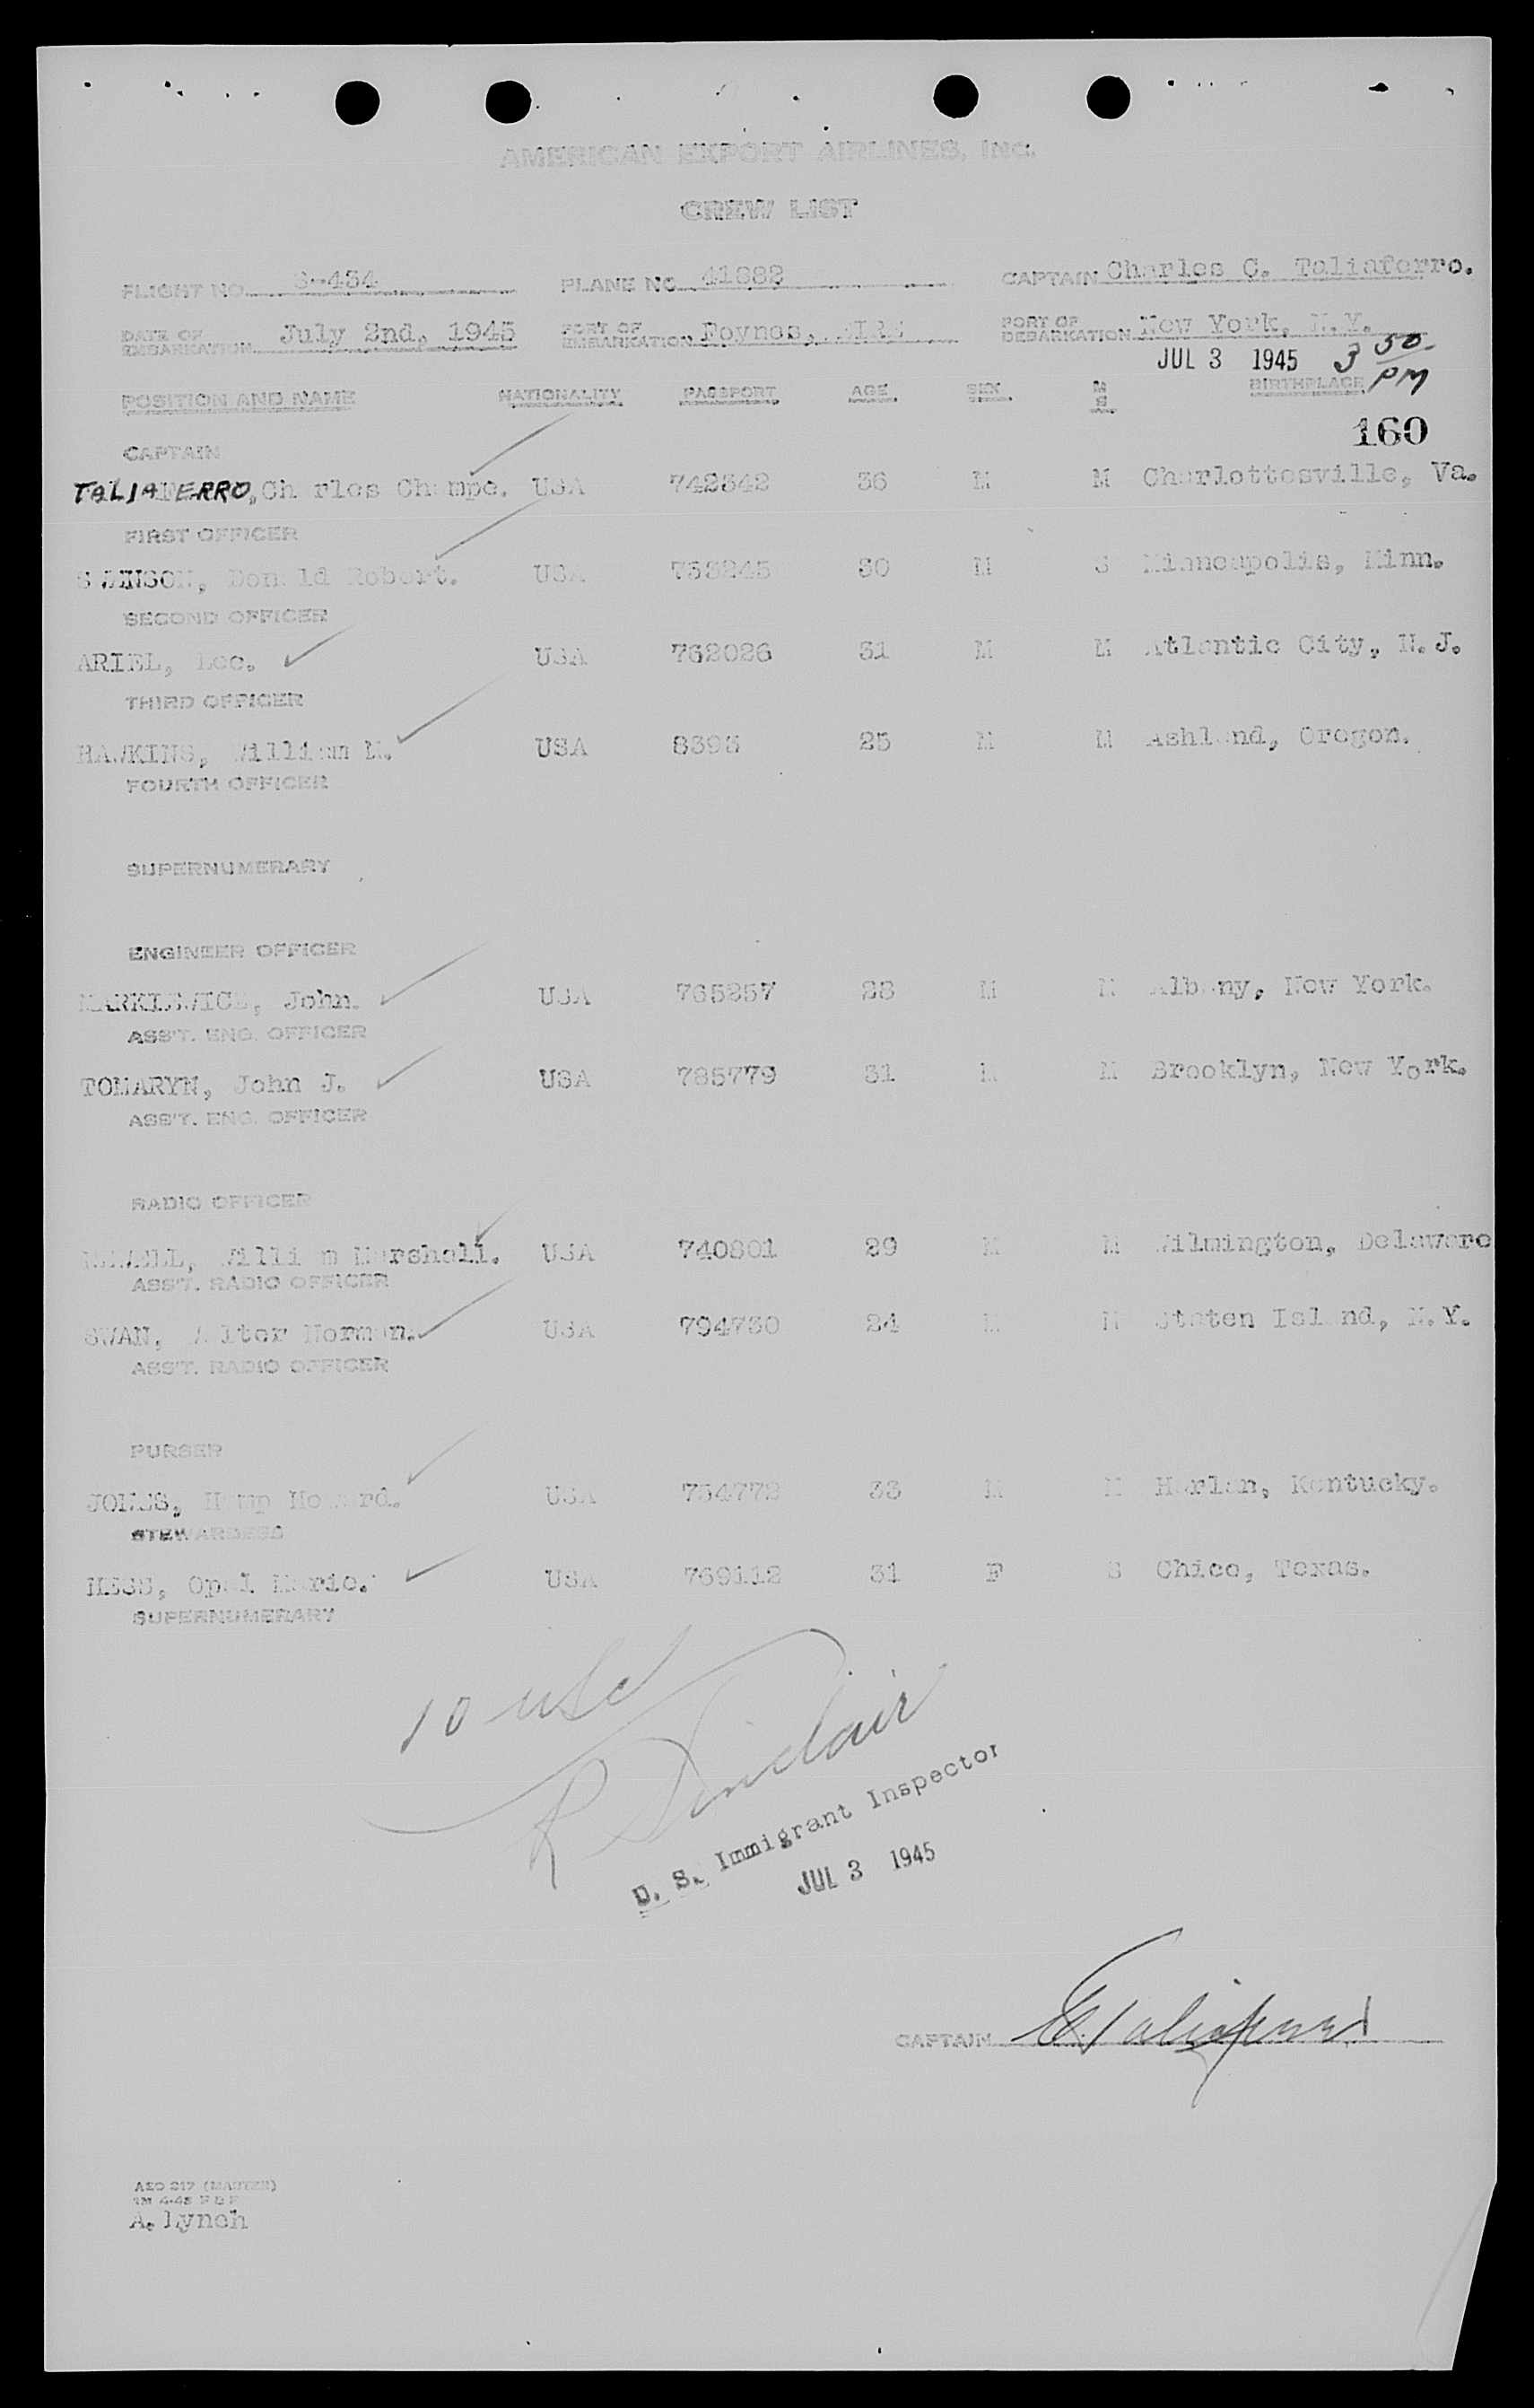 AMERICAN EXPORT AIRLINES, INC.
CREW LIST
FLIGHT NO. S-434 PLANE NO. 41882 CAPTAIN Charles C. Taliaferro.
DATE OF EMBARKATION July 2nd, 1945 PORT OF EMBARKATION Foynes, EIRE PORT OF DEBARKATION New York, N.Y.
JUL 3 1945 3 50 PM
POSITION AND NAME NATIONALITY PASSPORT AGE SEX M S BIRTHPLACE
160
CAPTAIN
TALIAFERRO, Charles Champe. USA 742342 36 M M Charlottesville, Va.
FIRST OFFICER
SWANSON, Donald Robert. USA 30 M S Minneapolis, Minn.
SECOND OFFICER
ARIEL, Lee. USA 762026 31 M M Atlantic City, N.J.
THIRD OFFICER
HAWKINS, William M. USA 8395 25 M M Ashland, Oregon.
FOURTH OFFICER
SUPERNUMERARY
ENGINEER OFFICER
John. USA 765257 28 M M Albany, New York.
ASS'T. ENG. OFFICER
TOMARYN, John J. USA 785779 31 M M Brooklyn, New York.
ASS'T. ENG. OFFICER
RADIO OFFICER
William Marshall. USA 740801 29 M M Wilmington, Delaware
ASS'T. RADIO OFFICER
SWAN, Walter Norman. USA 794730 24 M M Staten Island, N.Y.
ASS'T. RADIO OFFICER
PURSER
JONES, Hemp Howard. USA 754772 33 M M Harlan, Kentucky.
STEWARDESS
HESS, Opal Marie. USA 769112 31 F S Chico, Texas.
SUPERNUMERARY
10 USC
R Sinclair
U. S. Immigrant Inspector
JUL 3 1945
CAPTAIN C.C. Taliaferro
AEO 217 (MASTER)
A. Lynch